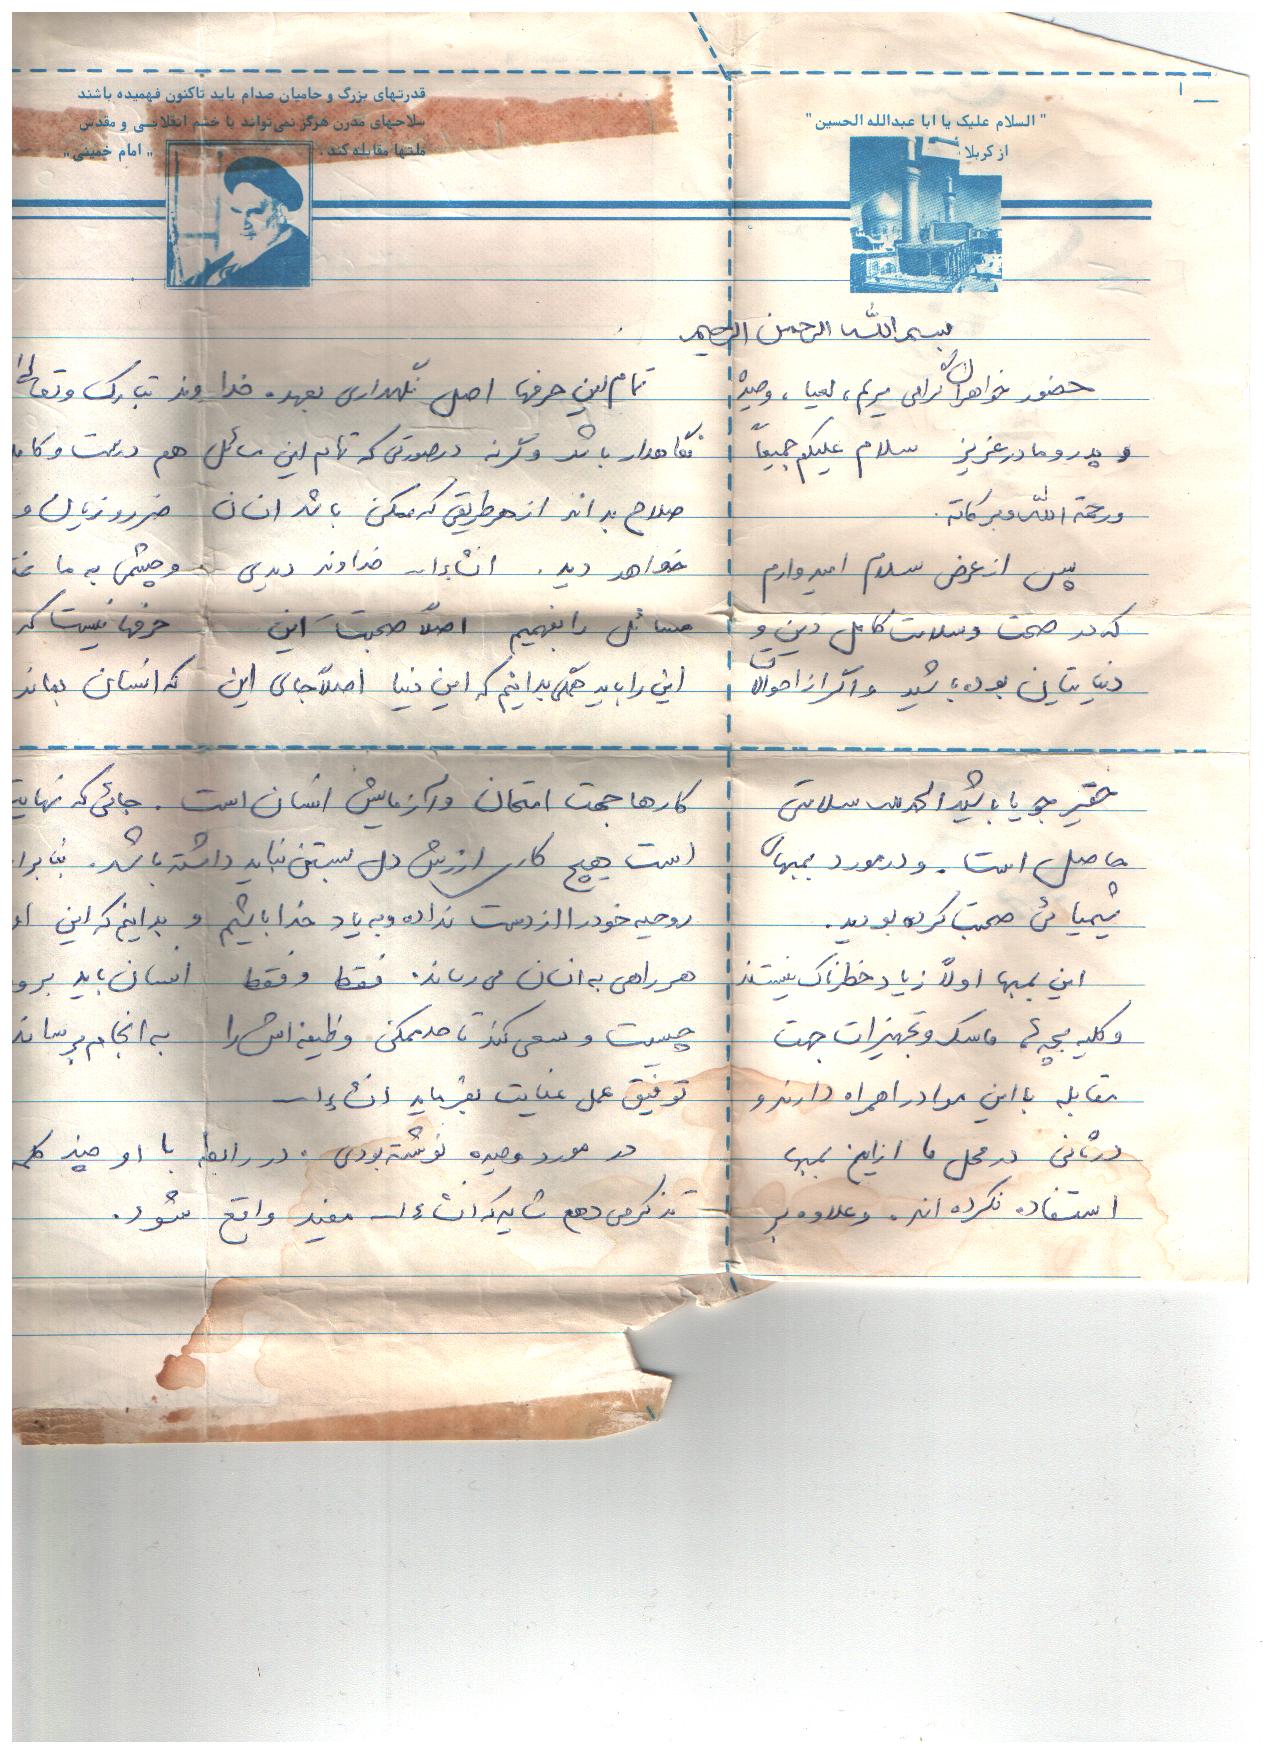 " السلام علیک یا ابا عبدالله الحسین "
از کربلا
بسم الله الرحمن الرحیم
حضور خواهران گرامی مریم، لعیا، وحیده
و پدر و مادر عزیز سلام علیکم جمیعاً
ورحمة الله وبرکاته.
پس از عرض سلام امیدوارم
که در صحت و سلامت کامل دین و
دنیایتان بوده باشید و اگر از احوالات
حقیر جویا باشید الحمدلله سلامتی
حاصل است. و در مورد بمبهای
شیمیائی صحبت کرده بودید.
این بمبها اولاً زیاد خطرناک نیستند
و کلیه بچه‌ها ماسک و تجهیزات جهت
مقابله با این مواد را همراه دارند و
در ثانی در محل ما از این بمبها
استفاده نکرده اند. و علاوه بر
قدرتهای بزرگ و حامیان صدام باید تاکنون فهمیده باشند
سلاحهای مدرن هرگز نمی‌تواند با خشم انقلابی و مقدس
ملتها مقابله کند. " امام خمینی "
تمام این حرفها اصل نگهداری بعهده خداوند تبارک و تعالی
نگاهدار باشد وگرنه در صورتی که تمام این مسائل هم درست و
صلاح بداند از هر طریقی که ممکن باشد انسان ضرر و زیان و
خواهد دید. انشاءالله خداوند دیدی و چشمی به ما
مسائل را بفهمیم اصلاً صحبت این حرفها نیست که
این را باید همگی بدانیم که این دنیا اصلاً جای این که انسان بماند
کارها جهت امتحان و آزمایش انسان است. جائی که نهایت
است هیچ کار ارزش دل بستن نباید داشته باشد.
روحیه خود را از دست نداده و به یاد خدا باشیم و بدانیم که این
هر راهی به انسان می رساند. فقط و فقط انسان باید
چیست و سعی کند تا حد ممکن وظیفه اش را به انجام برساند
توفیق عمل عنایت بفرماید انشاءالله
در مورد وحیده نوشته بودی. در رابطه با او چند کلمه
تذکر می دهم شاید که انشاءالله مفید واقع شود.